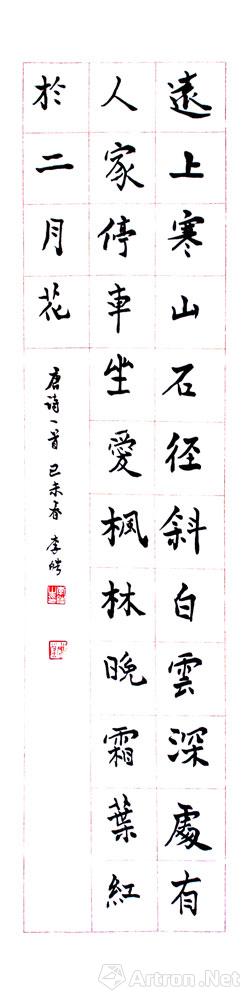 遠上寒山石径斜白雲深處有
人家停車坐愛楓林晚霜葉紅
於二月花
唐诗一首 己未春 李皓
Artron.Net